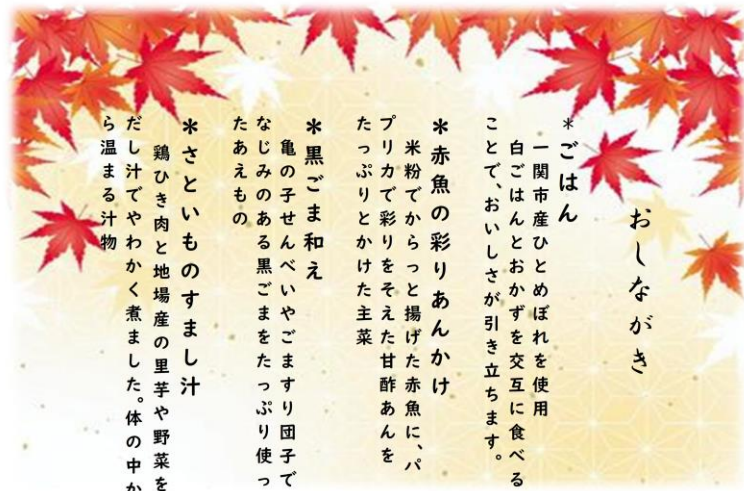 おしながき
*ごはん
一関市産ひとめぼれを使用
白ごはんとおかずを交互に食べる
ことで、おいしさが引き立ちます。
*赤魚の彩りあんかけ
米粉でからっと揚げた赤魚に、パ
プリカで彩りをそえた甘酢あんを
たっぷりとかけた主菜
*黒ごま和え
亀の子せんべいやごますり団子で
なじみのある黒ごまをたっぷり使っ
たあえもの
*さといものすまし汁
鶏ひき肉と地場産の里芋や野菜を
だし汁でやわかく煮ました。体の中か
ら温まる汁物